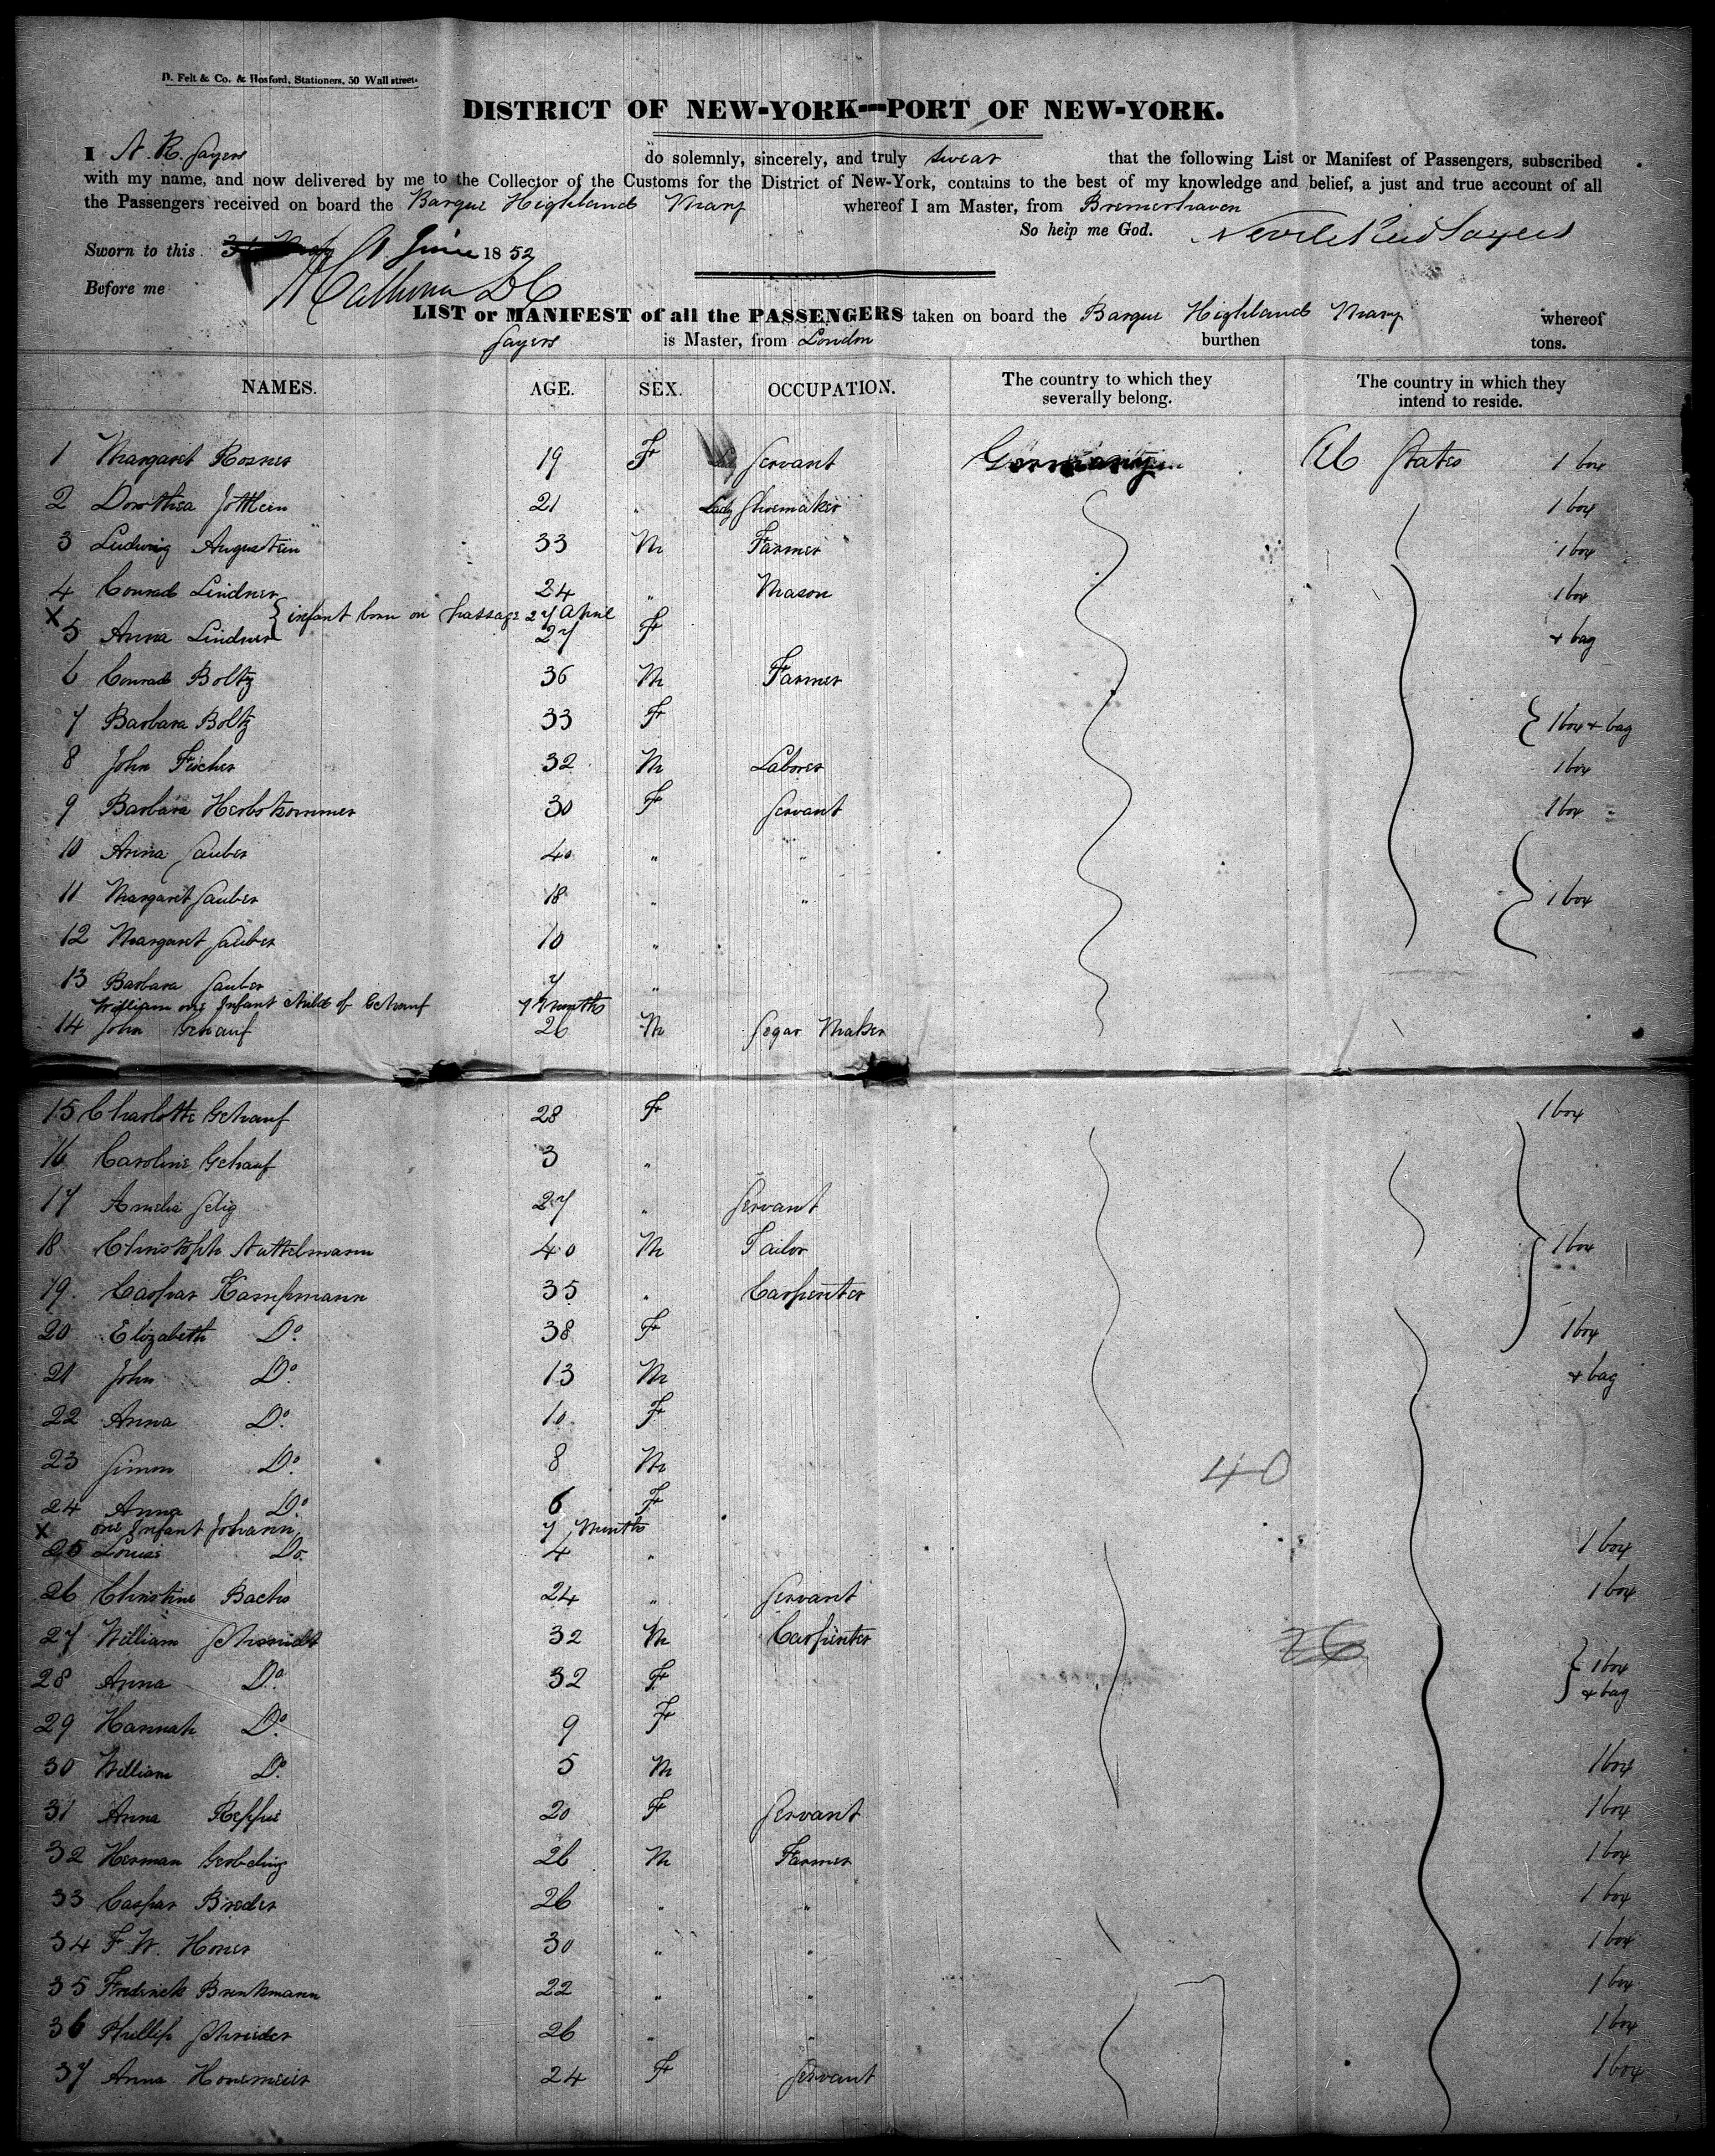 D. Felt & Co. & Hosford, Stationers, 50 Wall street.
DISTRICT OF NEW-YORK---PORT OF NEW-YORK.
I N. R. Sayers do solemnly, sincerely, and truly swear that the following List or Manifest of Passengers, subscribed
with my name, and now delivered by me to the Collector of the Customs for the District of New-York, contains to the best of my knowledge and belief, a just and true account of all
the Passengers received on board the Barque Highland Mary whereof I am Master, from Bremerhaven
So help me God. Sayers
Sworn to this 1 June 1852
Before me
LIST or MANIFEST of all the PASSENGERS taken on board the Barque Highland Mary whereof
Sayers is Master, from London burthen tons.
NAMES. AGE. SEX. OCCUPATION. The country to which they severally belong. The country in which they intend to reside.
1 Margaret Rosner 19 F Servant Germany U States 1 box
2 Dorothea 21 " Lady Shoemaker 1 box
3 Ludwig Augustein 33 M Farmer 1 box
4 Conrad Lindner 24 " Mason 1 box
infant born on passage 27 April
X 5 Anna Lindner 27 F + bag
6 Conrad Boltz 36 M Farmer
7 Barbara Boltz 33 F 1 box + bag
8 John Fischer 32 M Laborer 1 box
9 Barbara Herbstsommer 30 F Servant 1 box
10 Anna Sauber 40 " "
11 Margaret Sauber 18 " " 1 box
12 Margaret Sauber 10 "
13 Barbara Sauber 7 "
William one Infant Child of Gehauf 7 Months
14 John Gehauf 26 M Segar Maker
15 Charlotte Gehauf 28 F 1 box
16 Caroline Gehauf 3 "
17 Amelia Selig 27 " Servant
18 Christoph Nuttelmann 40 M Tailor 1 box
19. Caspar Kampmann 35 " Carpenter
20 Elizabeth Do. 38 F 1 box
21 John Do. 13 M + bag
22 Anna Do. 10 F
23 Simon Do. 8 M 40
24 Anna Do. 6 F
X one Infant Johann 7 Months
25 Louis Do. 4 " 1 box
26 Christine Bachs 24 " Servant 1 box
27 William Schmidt 32 M Carpenter 76
28 Anna Do. 32 F 1 box + bag
29 Hannah Do. 9 F
30 William Do. 5 M 1 box
31 Anna Reppue 20 F Servant 1 box
32 Herman Grobeling 26 M Farmer 1 box
33 Caspar Breder 26 " " 1 box
34 F. W. Honer 30 " " 1 box
35 Frederick Brinkmann 22 " " 1 box
36 Phillip Schrieder 26 " " 1 box
37 Anna Honemeier 24 F Servant 1 box